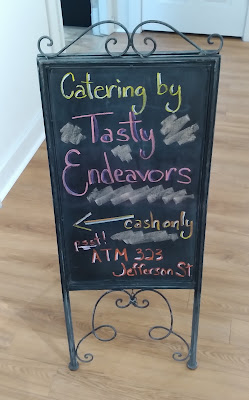 Catering by
Tasty
Endeavors
cash only
psst!
ATM 323
Jefferson St